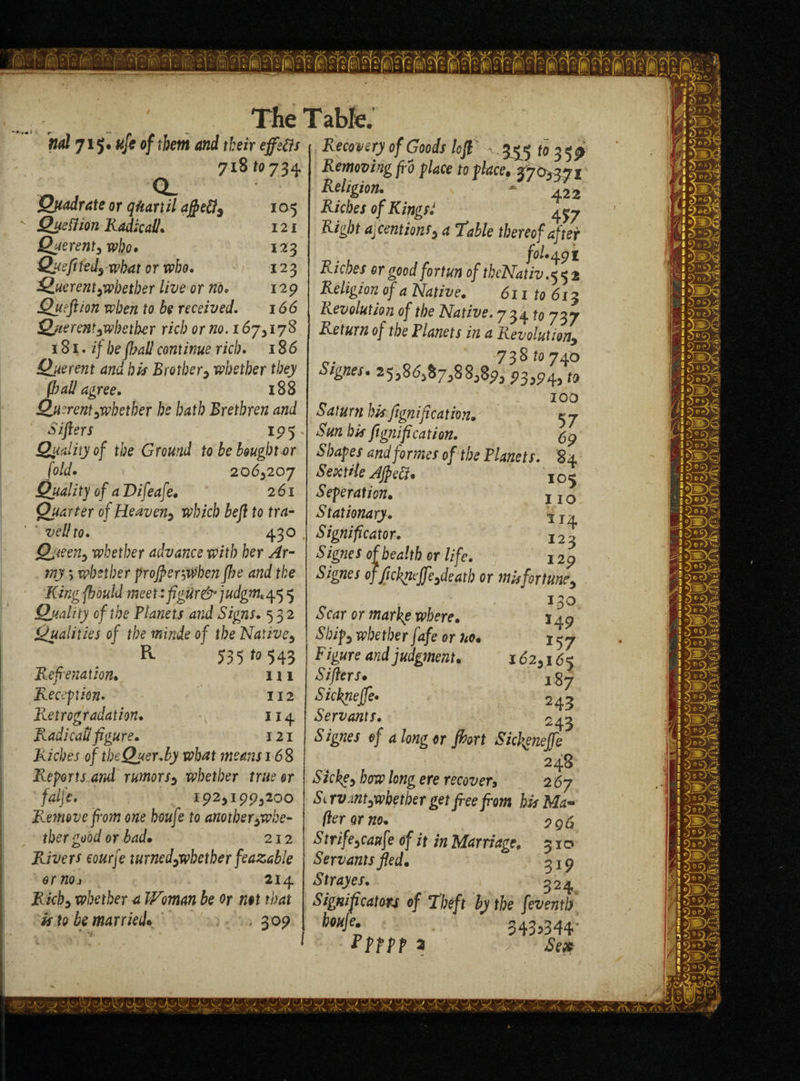 The Table.
nal 715. use of them and their effects
718 to 734
Q
Quadrate or quartil aspect, 105
Question Radicall. 121
Querent, who. 123
Quesited, what or who. 123
Querent, whether live or no. 129
Question when to be received. 166
Querent, whether rich or no. 167, 178
181. if he shall continue rich. 186
Querent and his Brother, whether they
shall agree. 188
Querent, whether he hath Brethren and
Sisters 195
Quality of the Ground to be bought or
sold. 206, 207
Quality of a Disease. 261
Quarter of Heaven, which best to tra-
vell to. 430
Queen, whether advance with her Ar-
my; whether prosper; When she and the
King should meet: figūr & judgm. 455
Quality of the Planets and Signs. 532
Qualities of the minde of the Native,
535 to 543
R
Refrenation. 111
Reception. 112
Retrogradation. 114
Radicall figure. 121
Riches of the Quer. by what means 168
Reports and rumors, whether true or
false. 192, 199, 200
Remove from one house to another, whe-
ther good or bad. 212
Rivers course turned, whether feazable
or no, 214
Rich, whether a Woman be or not that
is to be married. 309
Recovery of Goods lost 355 to 359
Removing frō place to place. 370, 371
Religion. 422
Riches of Kings. 457
Right ascentions, a Table thereof after
fol. 491
Riches or good fortun of the Nativ. 552
Religion of a Native. 611 to 613
Revolution of the Native. 734 to 737
Return of the Planets in a Revolution,
738 to 740
Signes. 25, 86, 87, 88, 89, 93, 94, to
100
Saturn his signification. 57
Sun his signification. 69
Shapes and formes of the Planets. 84
Sextile Aspect. 105
Seperation. 110
Stationary. 114
Significator. 123
Signes of health or life. 129
Signes of sicknesse, death or misfortune,
130
Scar or marke where. 149
Ship, whether safe or no. 157
Figure and judgment. 162, 165
Sisters. 187
Sicknesse. 243
Servants. 243
Signes of a long or short Sickenesse
248
Sicke, how long ere recover, 267
Servant, whether get free from his Ma-
ster or no. 296
Strife, cause of it in Marriage. 310
Servants fled. 319
Strayes. 324
Significators of Theft by the seventh
house. 343, 344
Ppppp 2
Sex